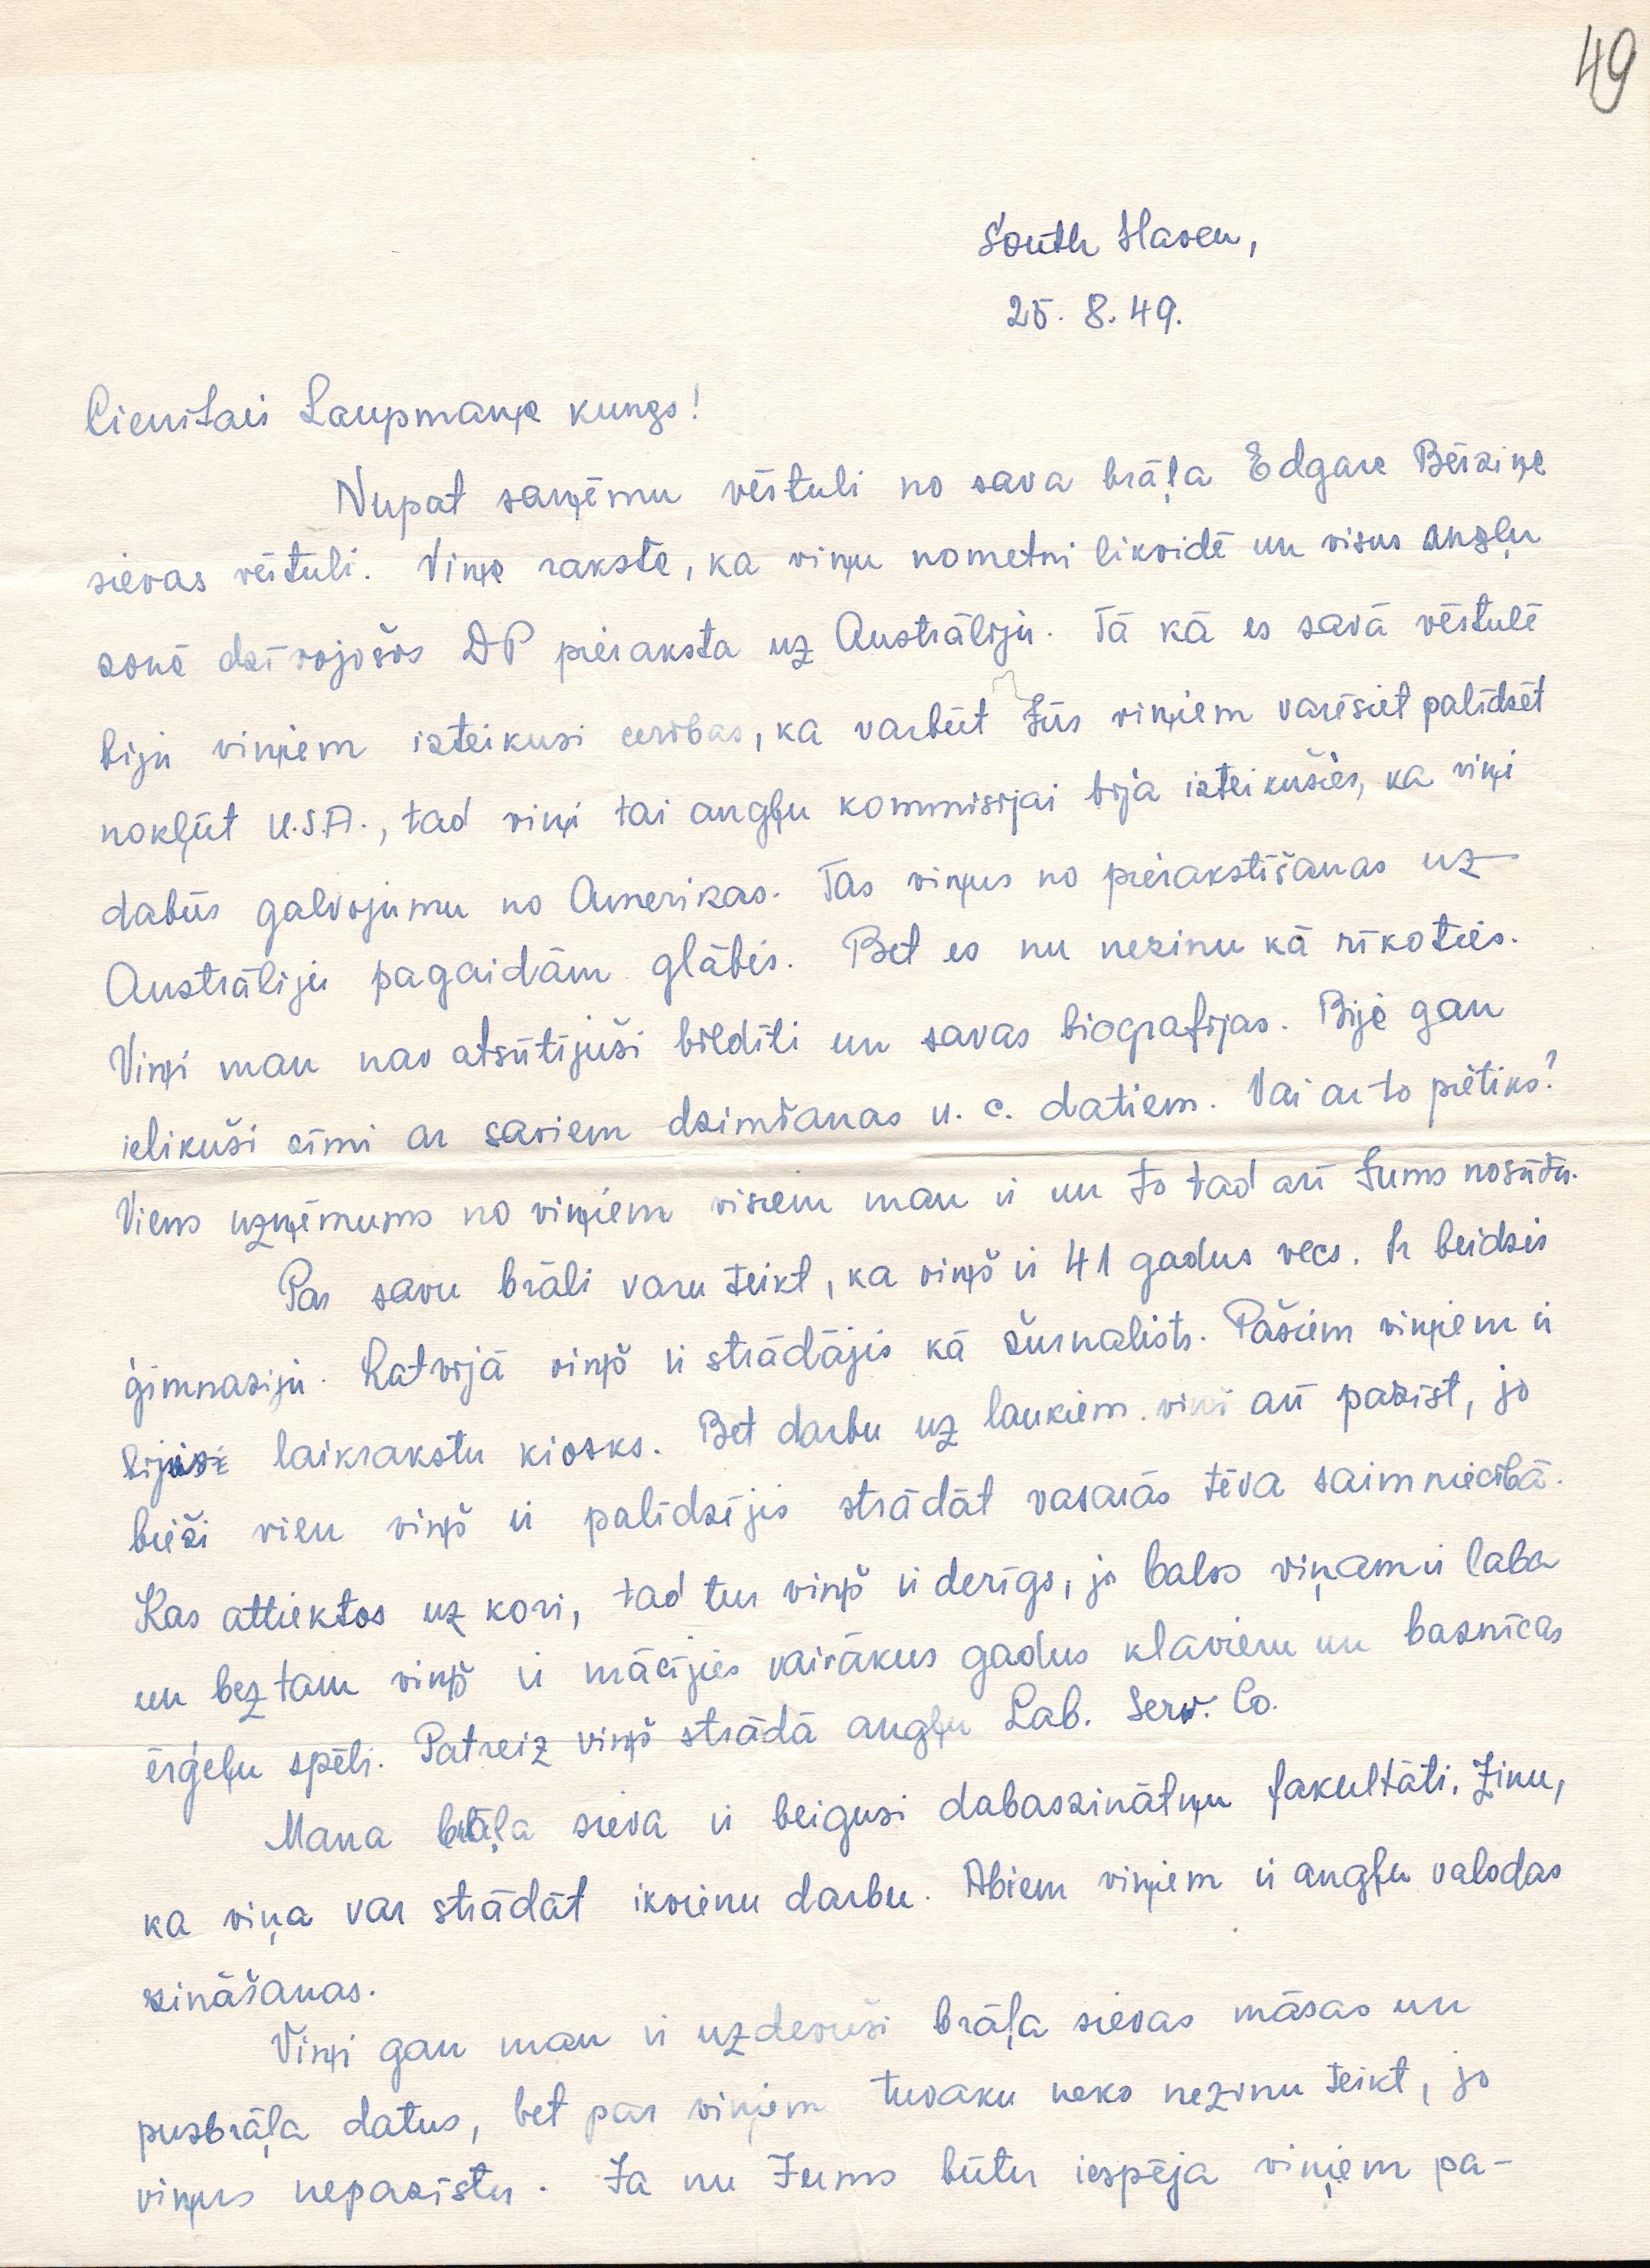 49
South Haven,
25. 8. 49.
Cienītais Laupmaņa kungs!
Nupat saņēmu vēstuli no sava brāļa Edgara Bērziņa
sievas vēstuli. Viņa raksta, ka viņu nometni likvidē un visus angļu
zonā dzīvojošos DP pieraksta uz Austrāliju. Tā kā es savā vēstulē
biju viņiem izteikusi cerības, ka varbūt Jūs viņiem varēsiet palīdzēt
nokļūt U.S.A., tad viņi tai angļu kommisijai bija izteikušies, ka viņi
dabūs galvojumu no Amerikas. Tas viņus no pierakstīšanas uz
Austrāliju pagaidām glābis. Bet es nu nezinu kā rīkoties.
Viņi man nav atsūtījuši bildīti un savas biografijas. Bija gan
ielikuši zīmi ar saviem dzimšanas u. c. datiem. Vai ar to pietiks?
Viens uzņēmums no viņiem visiem man ir un to tad arī Jums nosūtu.
Par savu brāli varu teikt, ka viņš ir 41 gadus vecs. Ir beidzis
ģimnaziju. Latvijā viņš ir strādājis kā žurnalists. Pašiem viņiem ir
bijis laikrakstu kiosks. Bet darbu uz laukiem viņi arī pazīst, jo
bieži vien viņš ir palīdzējis strādāt vasarās tēva saimniecībā.
Kas attiektos uz kori, tad tur viņš ir derīgs, jo balss viņam ir laba
un bez tam viņš ir mācījies vairākus gadus klavieru un baznīcas
ērģeļu spēli. Patreiz viņš strādā angļu Lab. Serv. Co.
Mana brāļa sieva ir beigusi dabaszinātņu fakultāti. Zinu,
ka viņa var strādāt ikvienu darbu. Abiem viņiem ir angļu valodas
zināšanas.
Viņi gan man ir uzdevuši brāļa sievas māsas un
pusbrāļa datus, bet par viņiem tuvaku neko nezinu teikt, jo
viņus nepazīstu. Ja nu Jums būtu iespēja viņiem pa-